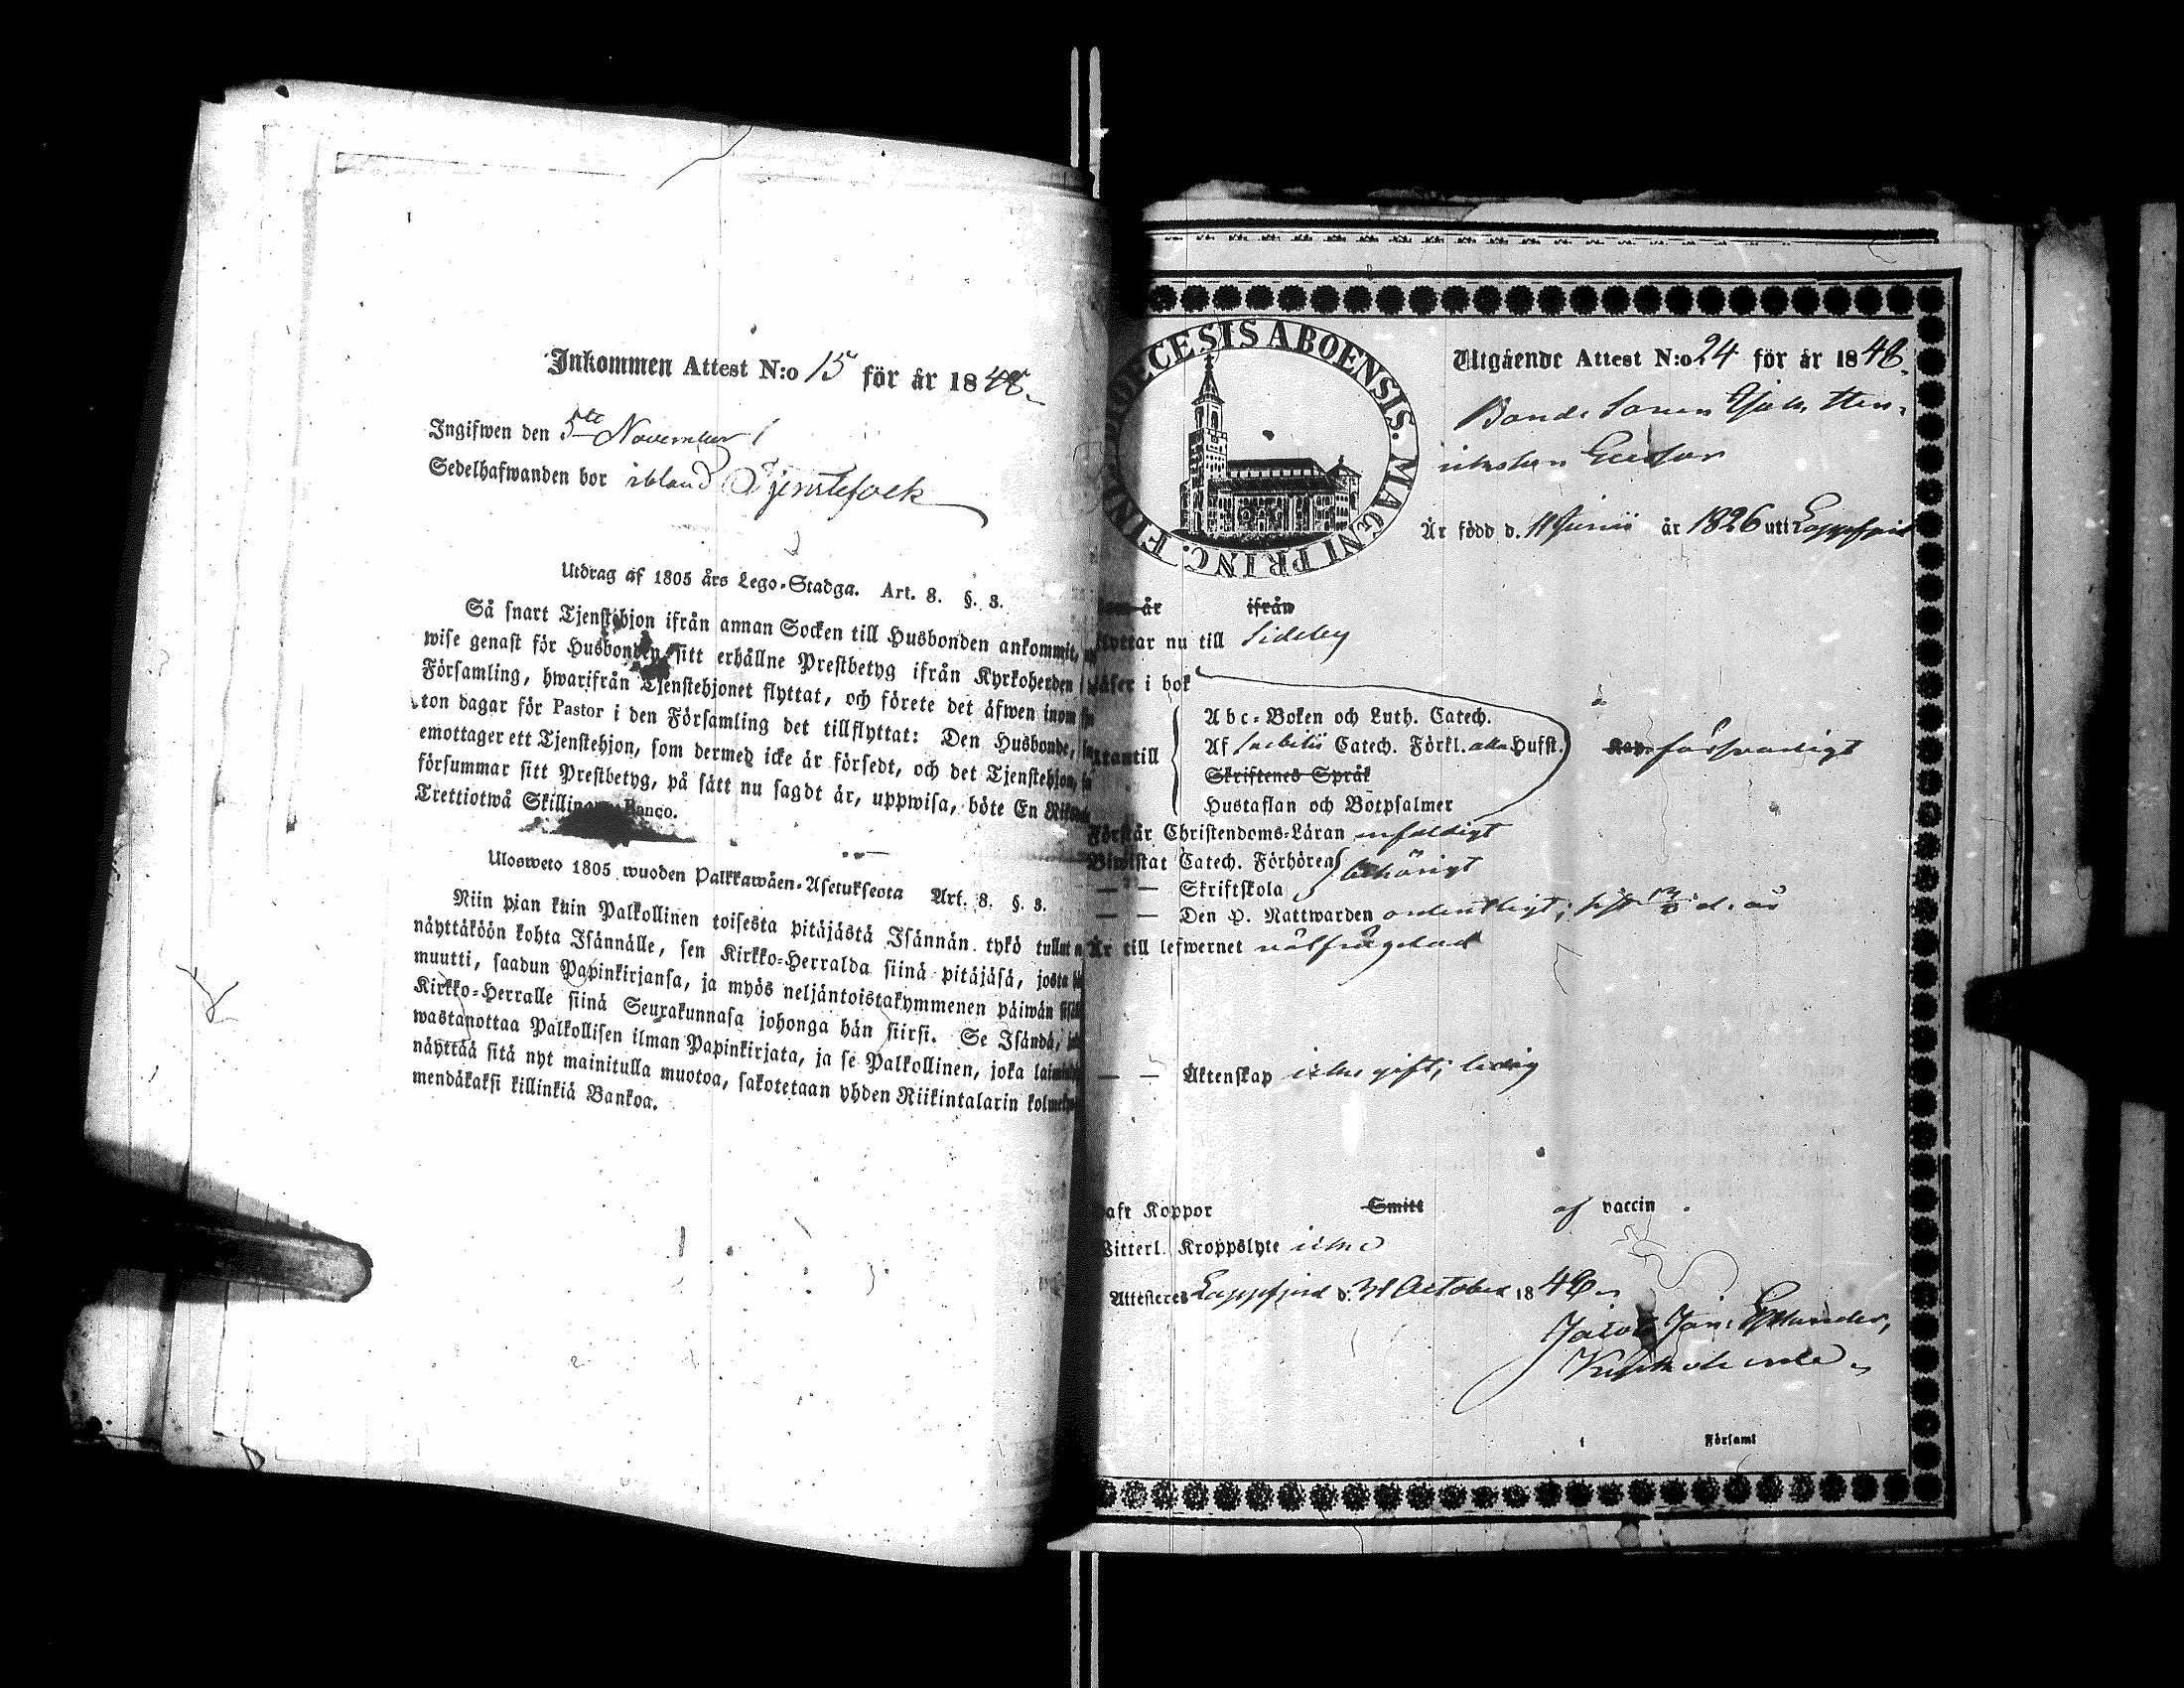 Inkommen Attest N:o 15 för år 1848
Ingifwen den 5te November
Sedelhafwanden bor ibland Tjenstefolk
Utdrag af 1805 års Lego-Stadga. Art. 8. §. 3.
Så snart Tjenstehjon ifrån annan Socken till Husbonden ankommit,
wise genast för Husbonden sitt erhållne Prestbetyg ifrån Kyrkoherden
Församling, hwarifrån Tjenstehjonet flyttat, och förete det äfwen inom
ton dagar för Pastor i den Församling det tillflyttat: Den Husbonde,
emottager ett Tjenstehjon, som dermed icke är försedt, och det Tjenstehjon,
försummar sitt Prestbetyg, på sätt nu sagdt är, uppwisa, böte En
Trettiotwå Skillingar Banco.
Ulosweto 1805 wuoden Palkkawäen-Asetuksesta Art. 8. §. 3.
Niin pian kuin Palkollinen toisesta pitäjästä Isännän tykö tullut
näyttäköön kohta Isännälle, sen Kirkko-Herralda siinä pitäjäsä, josta
muutti, saadun Papinkirjansa, ja myös neljäntoistakymmenen päiwän
Kirkko-Herralle siinä Seurakunnasa johonga hän siirsi. Se Isändä,
wastanottaa Palkollisen ilman Papinkirjata, ja se Palkollinen, joka
näyttää sitä nyt mainitulla muotoa, sakotetaan yhden Riikintalarin
mendäkaksi killinkiä Bankoa.
DIOECESIS ABOENSIS. MAGNI PRINC. FINL.
Utgående Attest N:o 24 för år 1848.
Bonde Sonen
Gustav
Är född d. 11 Junii år 1826 uti Lappfjerd
är ifrån
flyttar nu till Sideby
Läser i bok
Utantill
Abc-Boken och Luth. Catech.
Af Svebilii Catech. Förkl. alla Hufst. försvarligt
Skriftenes Språk
Hustaflan och Botpsalmer
Förstår Christendoms-Läran enfaldigt
Biwistat Catech. Förhören behörigt
— " — Skriftskola
— — Den H. Nattwarden ordentligt; sist d. år
Är till lefwernet välfrägdad
— — Äktenskap icke gift; ledig
Haft Koppor Smitt af vaccin.
Witterl. Kroppslyte icke
Attesteres Lappfjerd d. 31 October 1848
Jacob Joh:
Kyrkoherde
i Församl